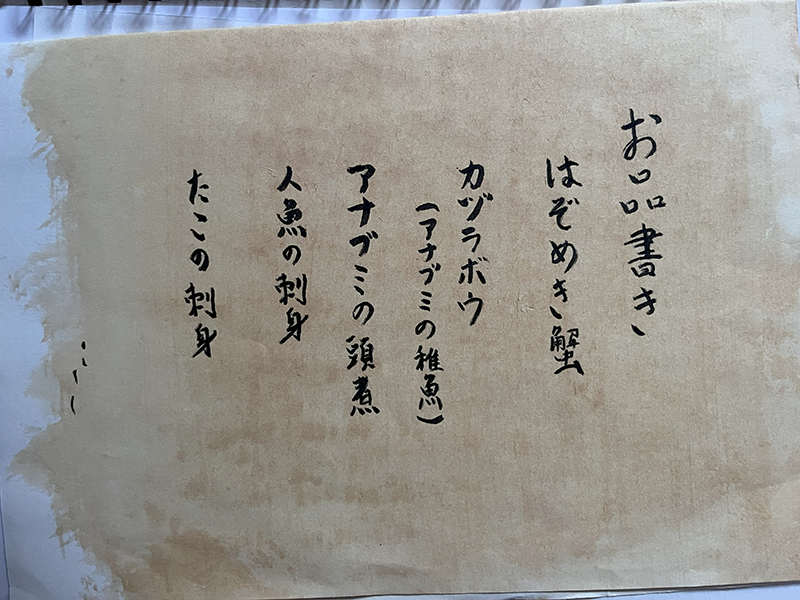 お品書き
はぞめき蟹
カヅラボウ
(アナブミの稚魚)
アナブミの頭煮
人魚の刺身
たこの刺身